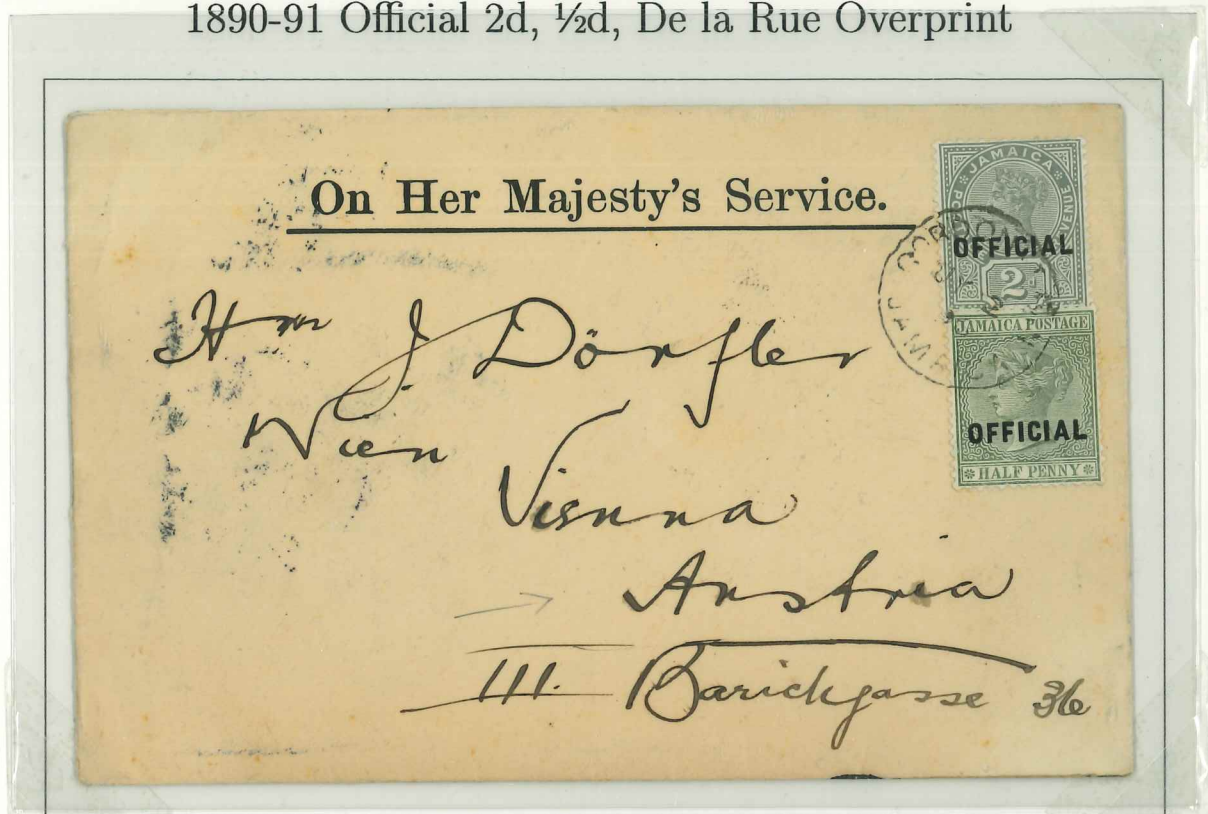 1890-91 Official 2d, ½d, De la Rue Overprint
On Her Majesty's Service.
JAMAICA
REVENUE
OFFICIAL
2D
GORDON
JAMAICA
JAMAICA POSTAGE
OFFICIAL
HALF PENNY
Herrn J. Dörfler
Wien
Vienna
Austria
III. Barichgasse 36